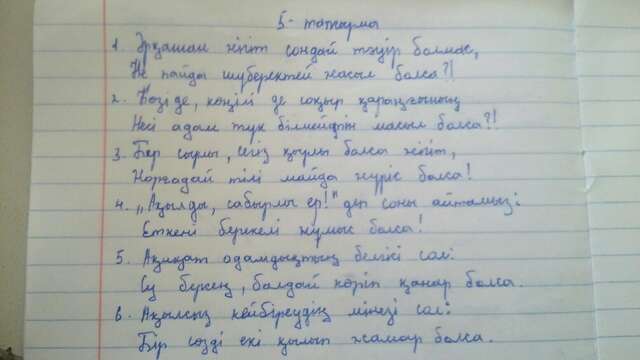 5- тапсырма
1. Әрқашан жігіт сондай тәуір болмас,
Не пайда шүберектей жасыл болса?!
2. Көзі де, көңілі де соқыр қараңғының
Несі адам түк білмейтін масыл болса?!
3. Бір сырлы, сегіз қырлы болса жігіт,
Жорғадай тілі майда жүріс болса!
4. „Ақылды, сабырлы ер!" деп соны айтамыз:
Еткені берекелі жұмыс болса!
5. Ақиқат адамдықтың белгісі сол:
Су берсең, балдай көріп қанар болса.
6. Ақылсыз кейбіреудің мінезі сол:
Бір сөзді екі қылып жамар болса.